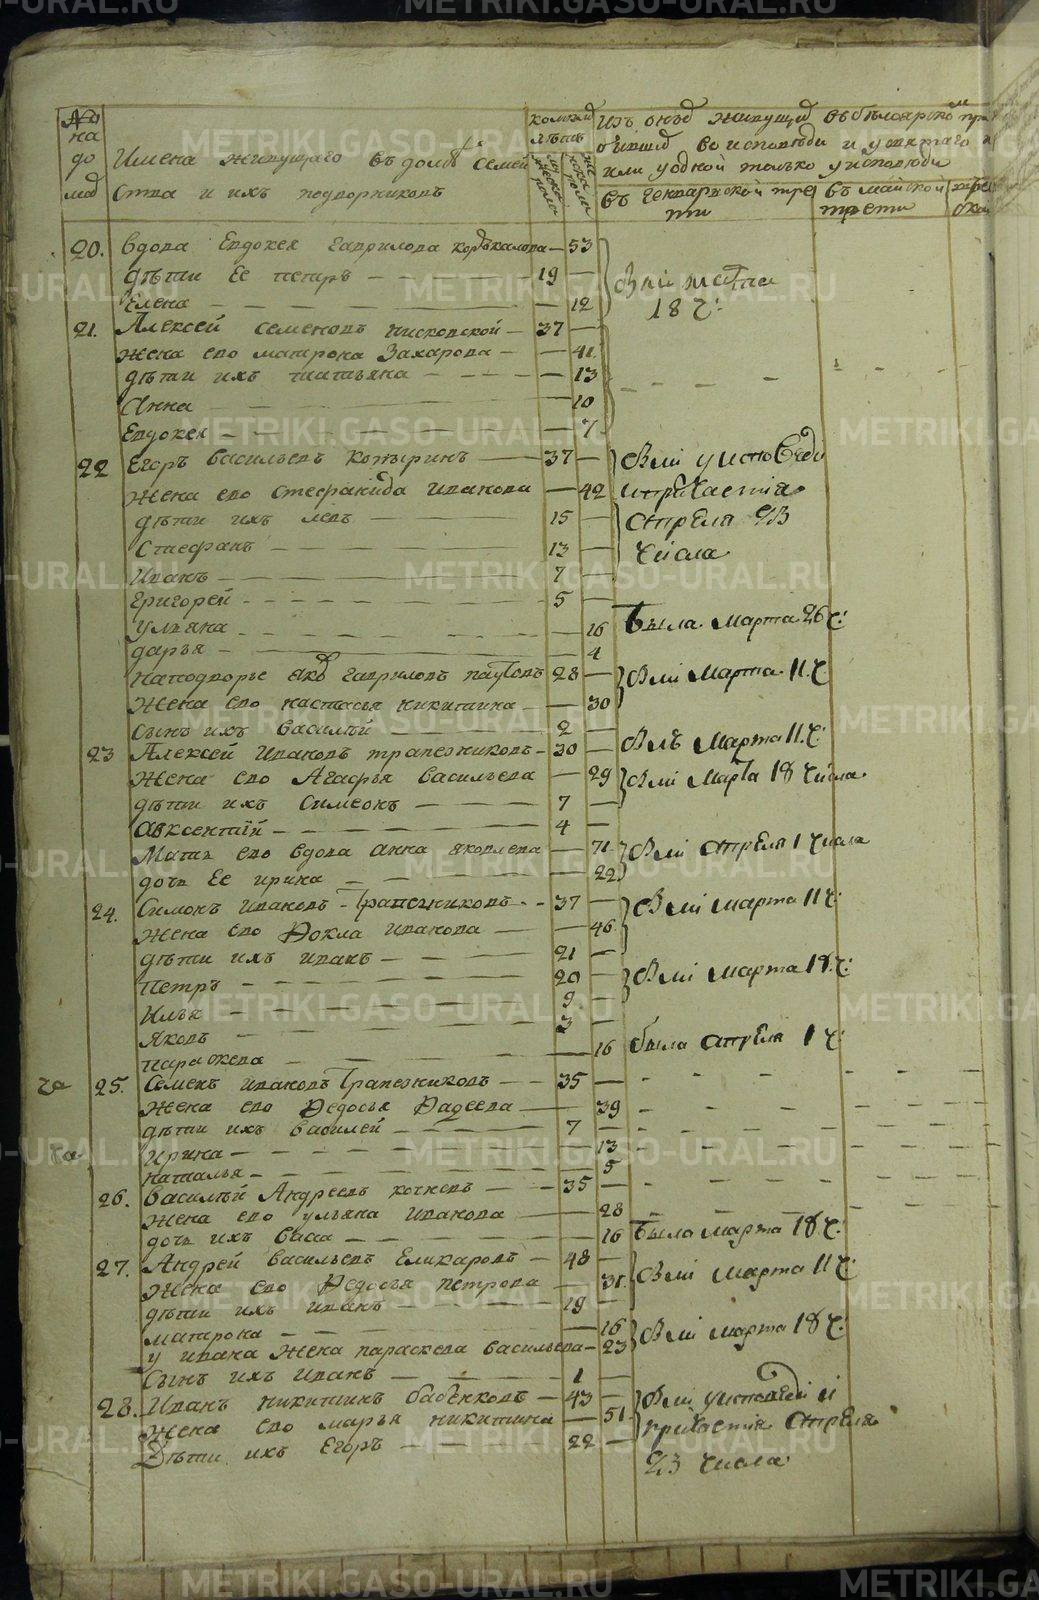 №
на
до
Имена живущаго въ доме семей
ства и ихъ подворниковъ
въ генварской тре
ти
въ майской
трети
20. вдова Евдокея Гаврилова 53
дѣти ее петръ 19
Елена 12
Марта
18 ч:
21. Алексей семеновъ 37
жена ево матрона Захарова 41
дѣти ихъ татьяна 13
Анна 10
Евдокея 7
22 Егоръ васильевъ 37
жена ево стефанида иванова 42
дѣти ихъ левъ 15
Стефанъ 13
Иванъ 7
григорей 5
ульяна 16
дарья 4
Были у исповеди
и причастия
Апреля 23
Числа
была Марта 26 ч:
на подворье гавриловъ 28
жена ево настасья никитина 30
сынъ ихъ василѣй 2
Были Марта 11 ч
23 Алексей ивановъ трапезниковъ 30
Былъ Марта 11 ч:
жена ево Агафья васильева 29
Были Марта 18 числа
дѣти ихъ симеонъ 7
авксентий 4
Мать ево вдова анна яковлева 71
дочь ее ирина 22
Были апреля 1 числа
24. Симонъ ивановъ Трапезниковъ 37
Были марта 11 ч:
жена ево Фокла иванова 46
дѣти ихъ иванъ 21
петръ 20
Были марта 18 ч:
Илья 9
яковъ 3
параскева 16
была апреля 1 ч:
25. Семенъ ивановъ Трапезниковъ 35
жена ево Федосья Фадеева 39
дѣти ихъ василей 7
ирина 13
наталья 5
26. василѣй Андреевъ кочневъ 35
жена ево ульяна иванова 28
дочь ихъ васса 16
Была марта 18 ч:
27. Андрей васильевъ Еликаровъ 48
жена ево Федосья петрова 31
Были марта 11 ч:
дѣти ихъ иванъ 19
матрона 16
Были марта 18 ч:
у ивана жена параскева васильева 23
сынъ ихъ иванъ 1
28. Иванъ никитинъ бабенковъ 43
жена ево марья никитина 51
Дѣти ихъ Егоръ 22
Были у исповеди и
причастия апреля
23 числа
METRIKI.GASO-URAL.RU